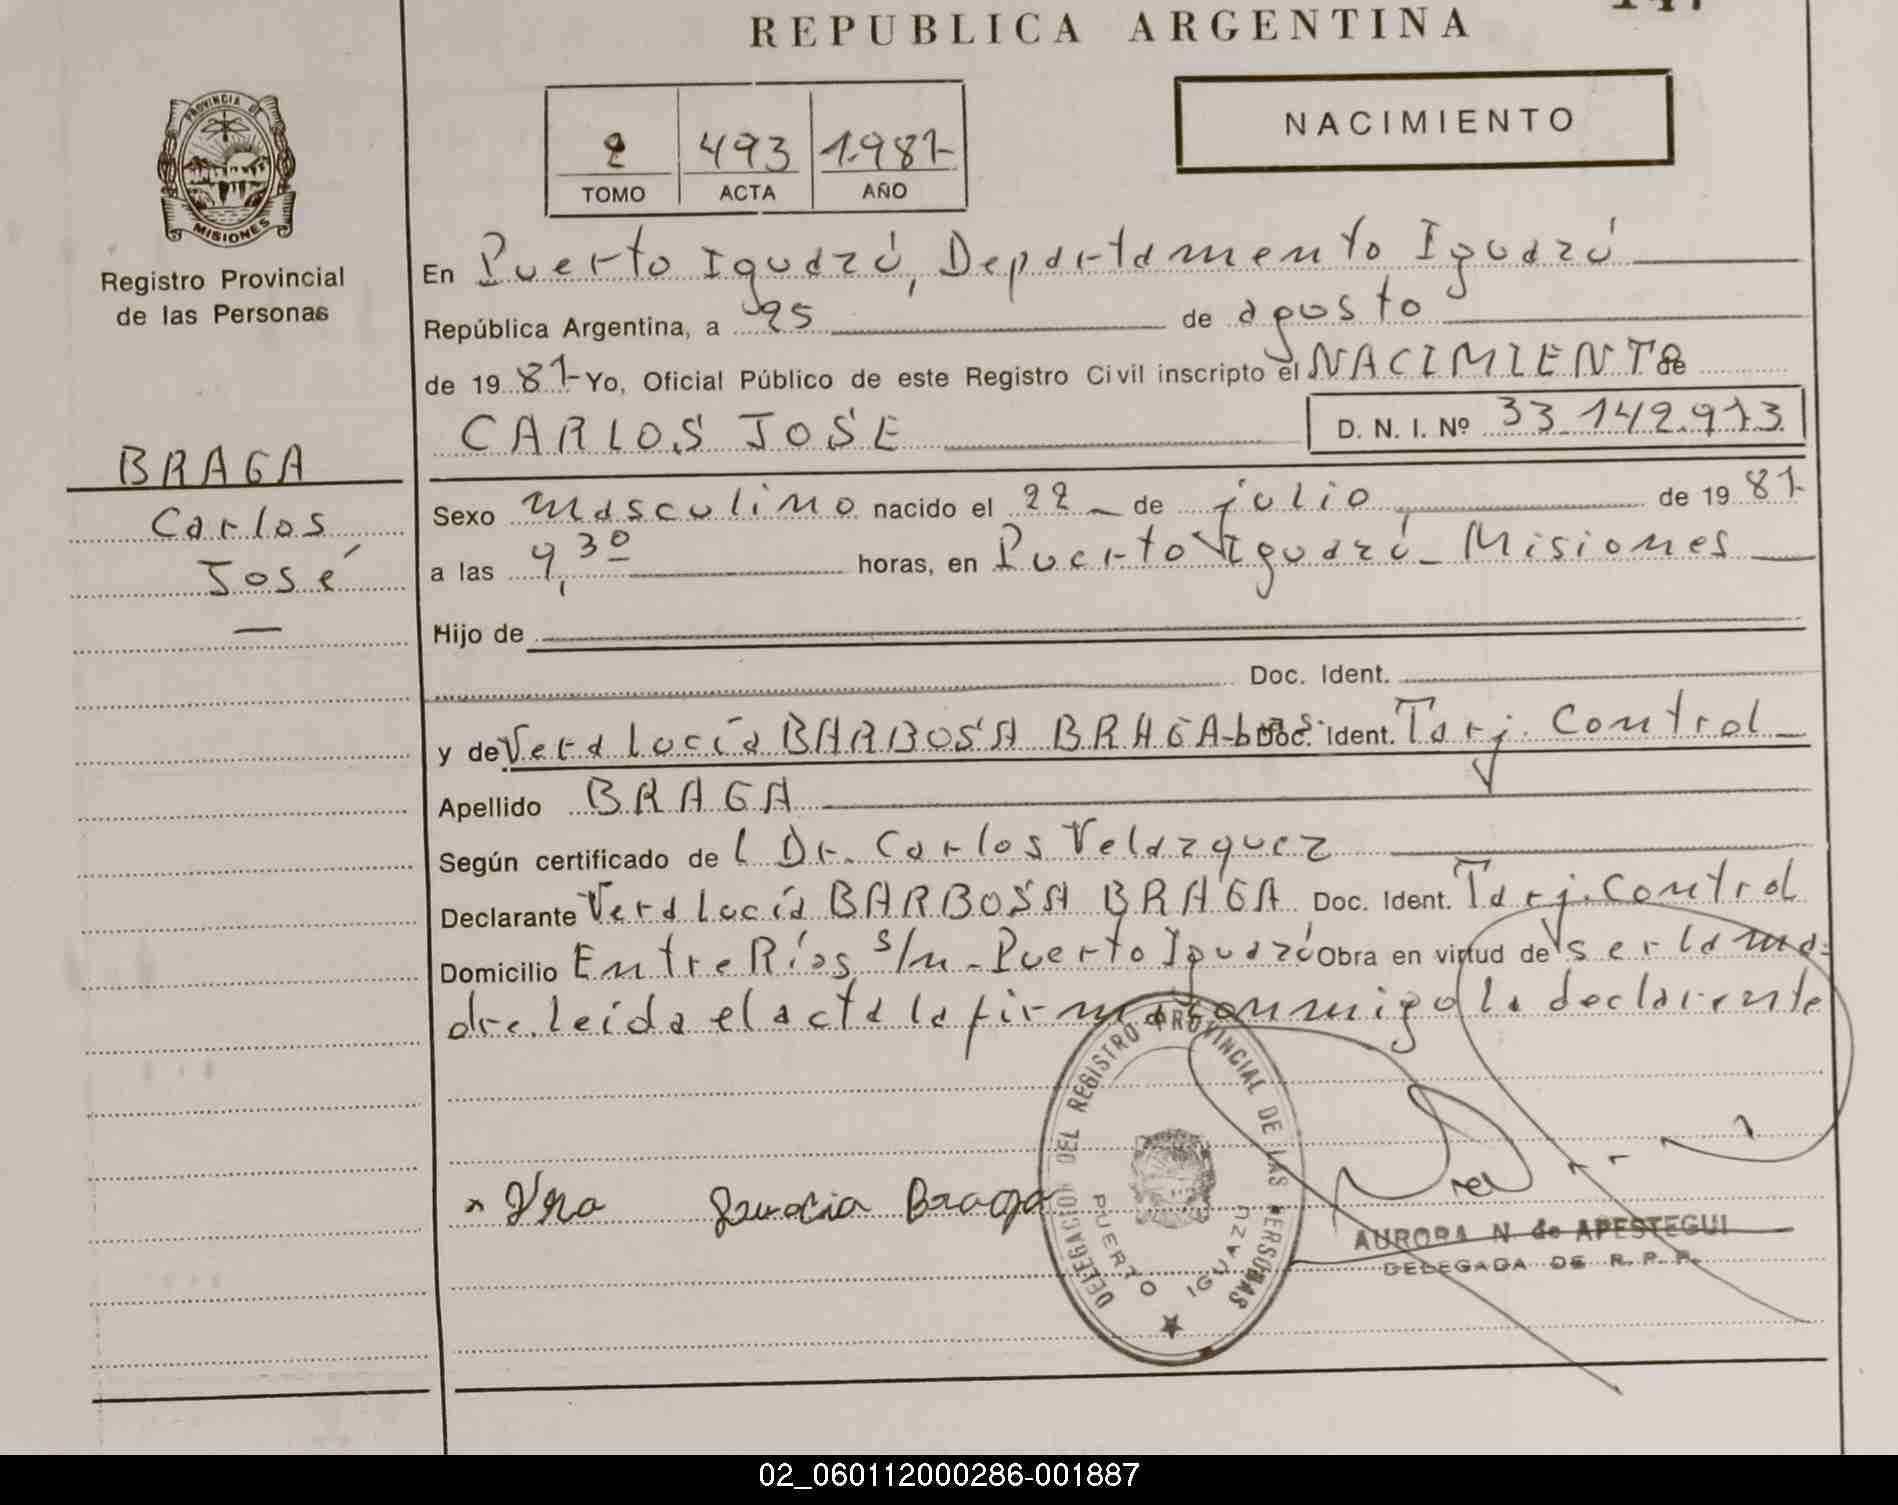 REPUBLICA ARGENTINA
PROVINCIA DE
MISIONES
Registro Provincial
de las Personas
NACIMIENTO
2 493 1.987-
TOMO ACTA AÑO
En Puerto Iguazú, Departamento Iguazú
República Argentina, a 25 de agosto
de 19 87- Yo, Oficial Público de este Registro Civil inscripto el NACIMIENTO de
CARLOS JOSE D. N. I. Nº 33.142.973
BRAGA
Carlos
José
Sexo masculino nacido el 22 de julio de 19 87-
a las 9,30 horas, en Puerto Iguazú - Misiones
Hijo de
Doc. Ident.
y de Vera Lucía BARBOSA BRAGA Doc. Ident. Tarj. Control
Apellido BRAGA
Según certificado del Dr. Carlos Velazquez
Declarante Vera Lucía BARBOSA BRAGA Doc. Ident. Tarj. Control
Domicilio Entre Ríos s/n - Puerto Iguazú Obra en virtud de ser la ma-
dre. leída el acta la firma conmigo la declarante
DELEGACION DEL REGISTRO PROVINCIAL DE LAS PERSONAS
PUERTO IGUAZU
Braga
AURORA N. de APESTEGUI
DELEGADA DE R. P. P.
02_060112000286-001887